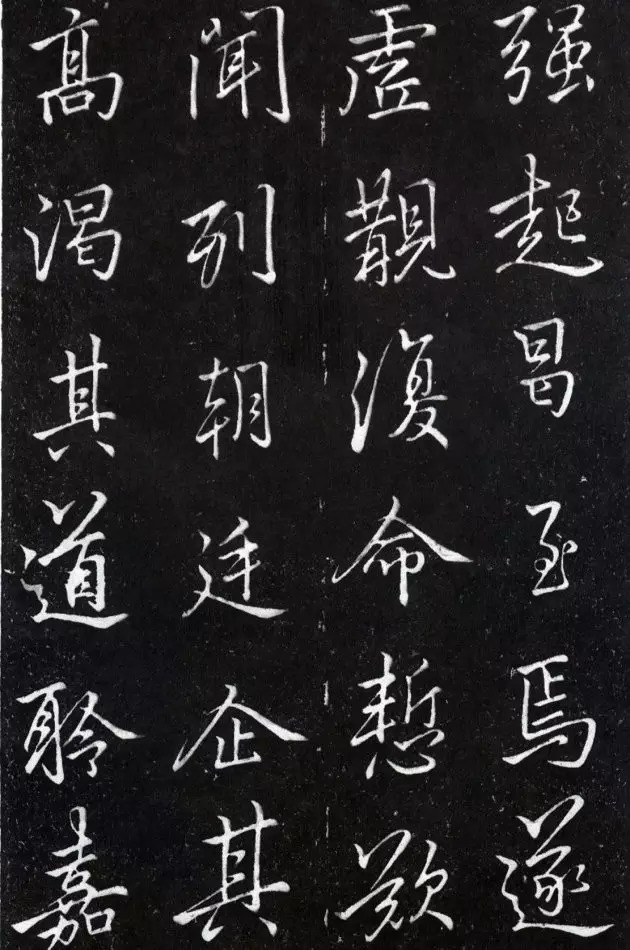 强起昌至焉遂
虛觀復命慙歎
聞列朝廷企其
高渴其道聆嘉